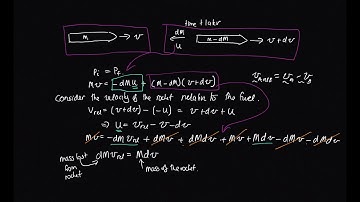 time t later
m → v
dM
u
m-dM → v+dv
Pi = Pf
Mv = -dMu + (m-dM)(v+dv)
Consider the velocity of the rocket relative to the fuel.
Vrel = (v+dv) - (-u) = v+dv+u
⇒ u = vrel - v - dv
Mv = -dMvrel + dMv + dMdv + Mv + Mdv - dMv - dMdv
mass lost from rocket
dMvrel = Mdv
mass of the rocket.